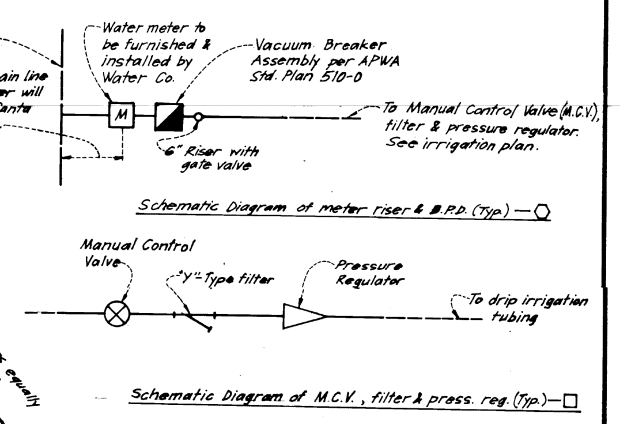 Water meter to
be furnished &
installed by
Water Co.
Vacuum Breaker
Assembly per APWA
Std. Plan 510-0
ain line
er will
anta
M
6" Riser with
gate valve
To Manual Control Valve (M.C.V.),
filter & pressure regulator.
See irrigation plan.
Schematic Diagram of meter riser & B.P.D. (Typ.) —
Manual Control
Valve
"Y"-Type filter
Pressure
Regulator
To drip irrigation
tubing
equally
Schematic Diagram of M.C.V., filter & press. reg. (Typ.) —